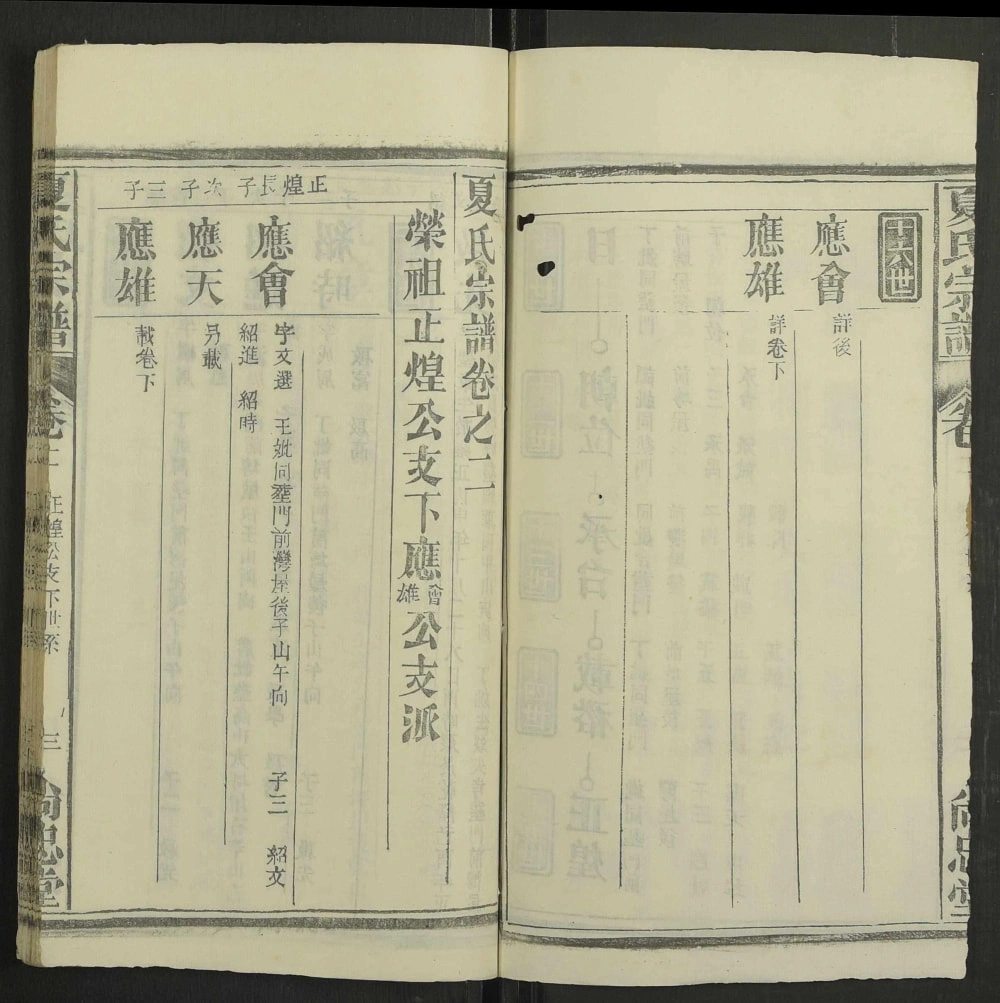 夏氏宗譜
尚忠堂
十六世
應會
詳後
應雄
詳卷下
夏氏宗譜卷之二
榮祖正煌公支下應會雄公支派
正煌長子
應會
字文選 王妣同塋門前灣屋後子山午向 子二 紹文
紹進 紹時
次子
應天
另載
三子
應雄
載卷下
夏氏宗譜
卷二
正煌公支下世系
三
尚忠堂